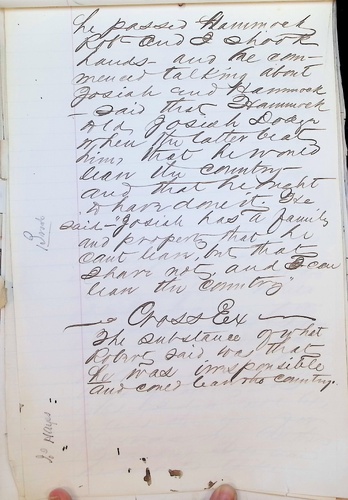 he passed Hammock
Rob and I shook
hands- and he com-
menced talking about
Josiah and Hammock
- said that Hammock
told Josiah
when the latter beat
him, that he would
leave the country-
and that he ought
to have done it. He
said- "Josiah has a family
and property that he
cant leave, but that
I have not, and I can
leave the country"
Cross Ex
The substance of what
Robert said was that
he was irresponsible
and could leave the country.